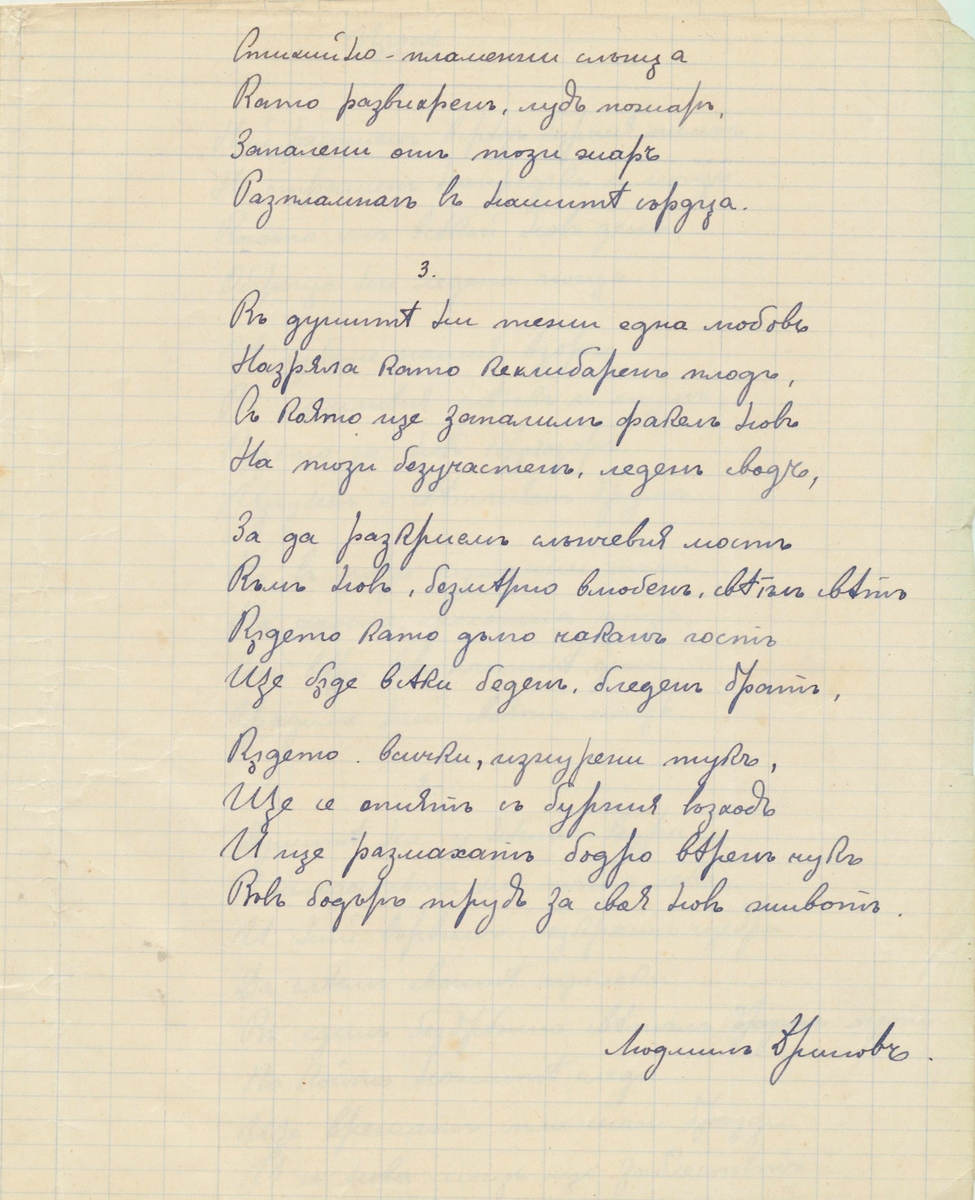 Стихийно-пламенни слънца
Като развихренъ, лудъ пожаръ,
Запалени отъ този жаръ
Разпламнахъ въ нашитѣ сърдца.
3.
Въ душитѣ ни тежи една любовь
Назряла като кехлибаренъ плодъ,
Съ която ще запалимъ факелъ новъ
На този безучастенъ, леденъ сводъ,
За да разкриемъ слънчевия мостъ
Към новъ, безмѣрно влюбенъ, свѣтълъ свѣтъ
Кѫдето като дълго чаканъ гость
Ще бѫде всѣки беденъ, бледенъ братъ,
Кѫдето всички, изнурени тукъ,
Ще се опиятъ съ бурния възходъ
И ще размахатъ бодро вѣренъ чукъ
Въвъ бодъръ трудъ за своя новъ животъ.
Людмилъ